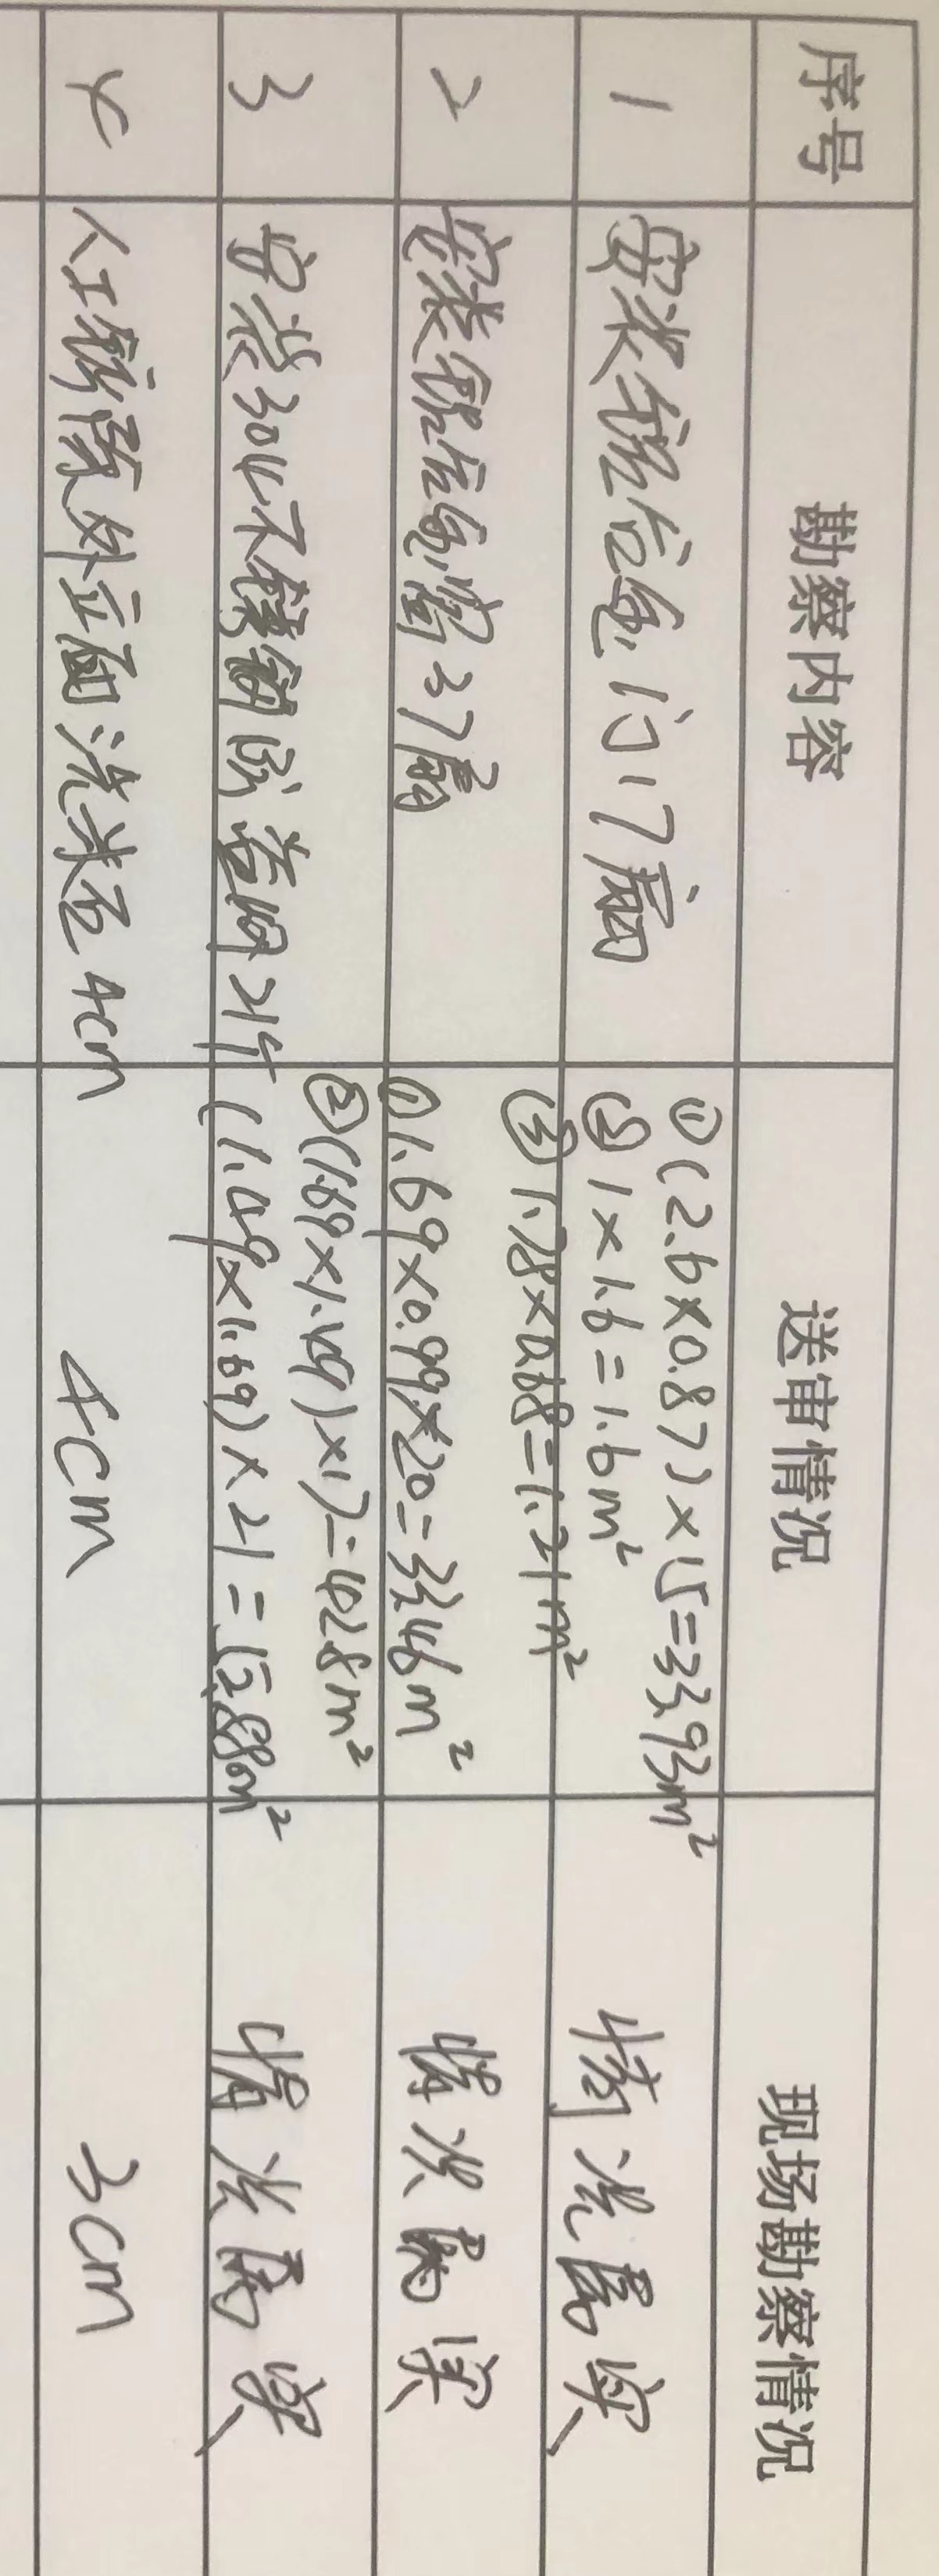 序号 勘察内容 送审情况 现场勘察情况
1 安装铝合金门17扇 ①(2.6×0.87)×15=33.93m² 情况属实
②1×1.6=1.6m²
③1.78×0.68=1.21m²
2 安装铝合金窗37扇 ①1.69×0.99×20=33.46m² 情况属实
②(1.69×1.49)×17=42.8m²
3 安装304不锈钢防盗网21个 (1.49×1.69)×21=52.88m² 情况属实
4 人工铲除外立面洗米石4cm 4cm 3cm